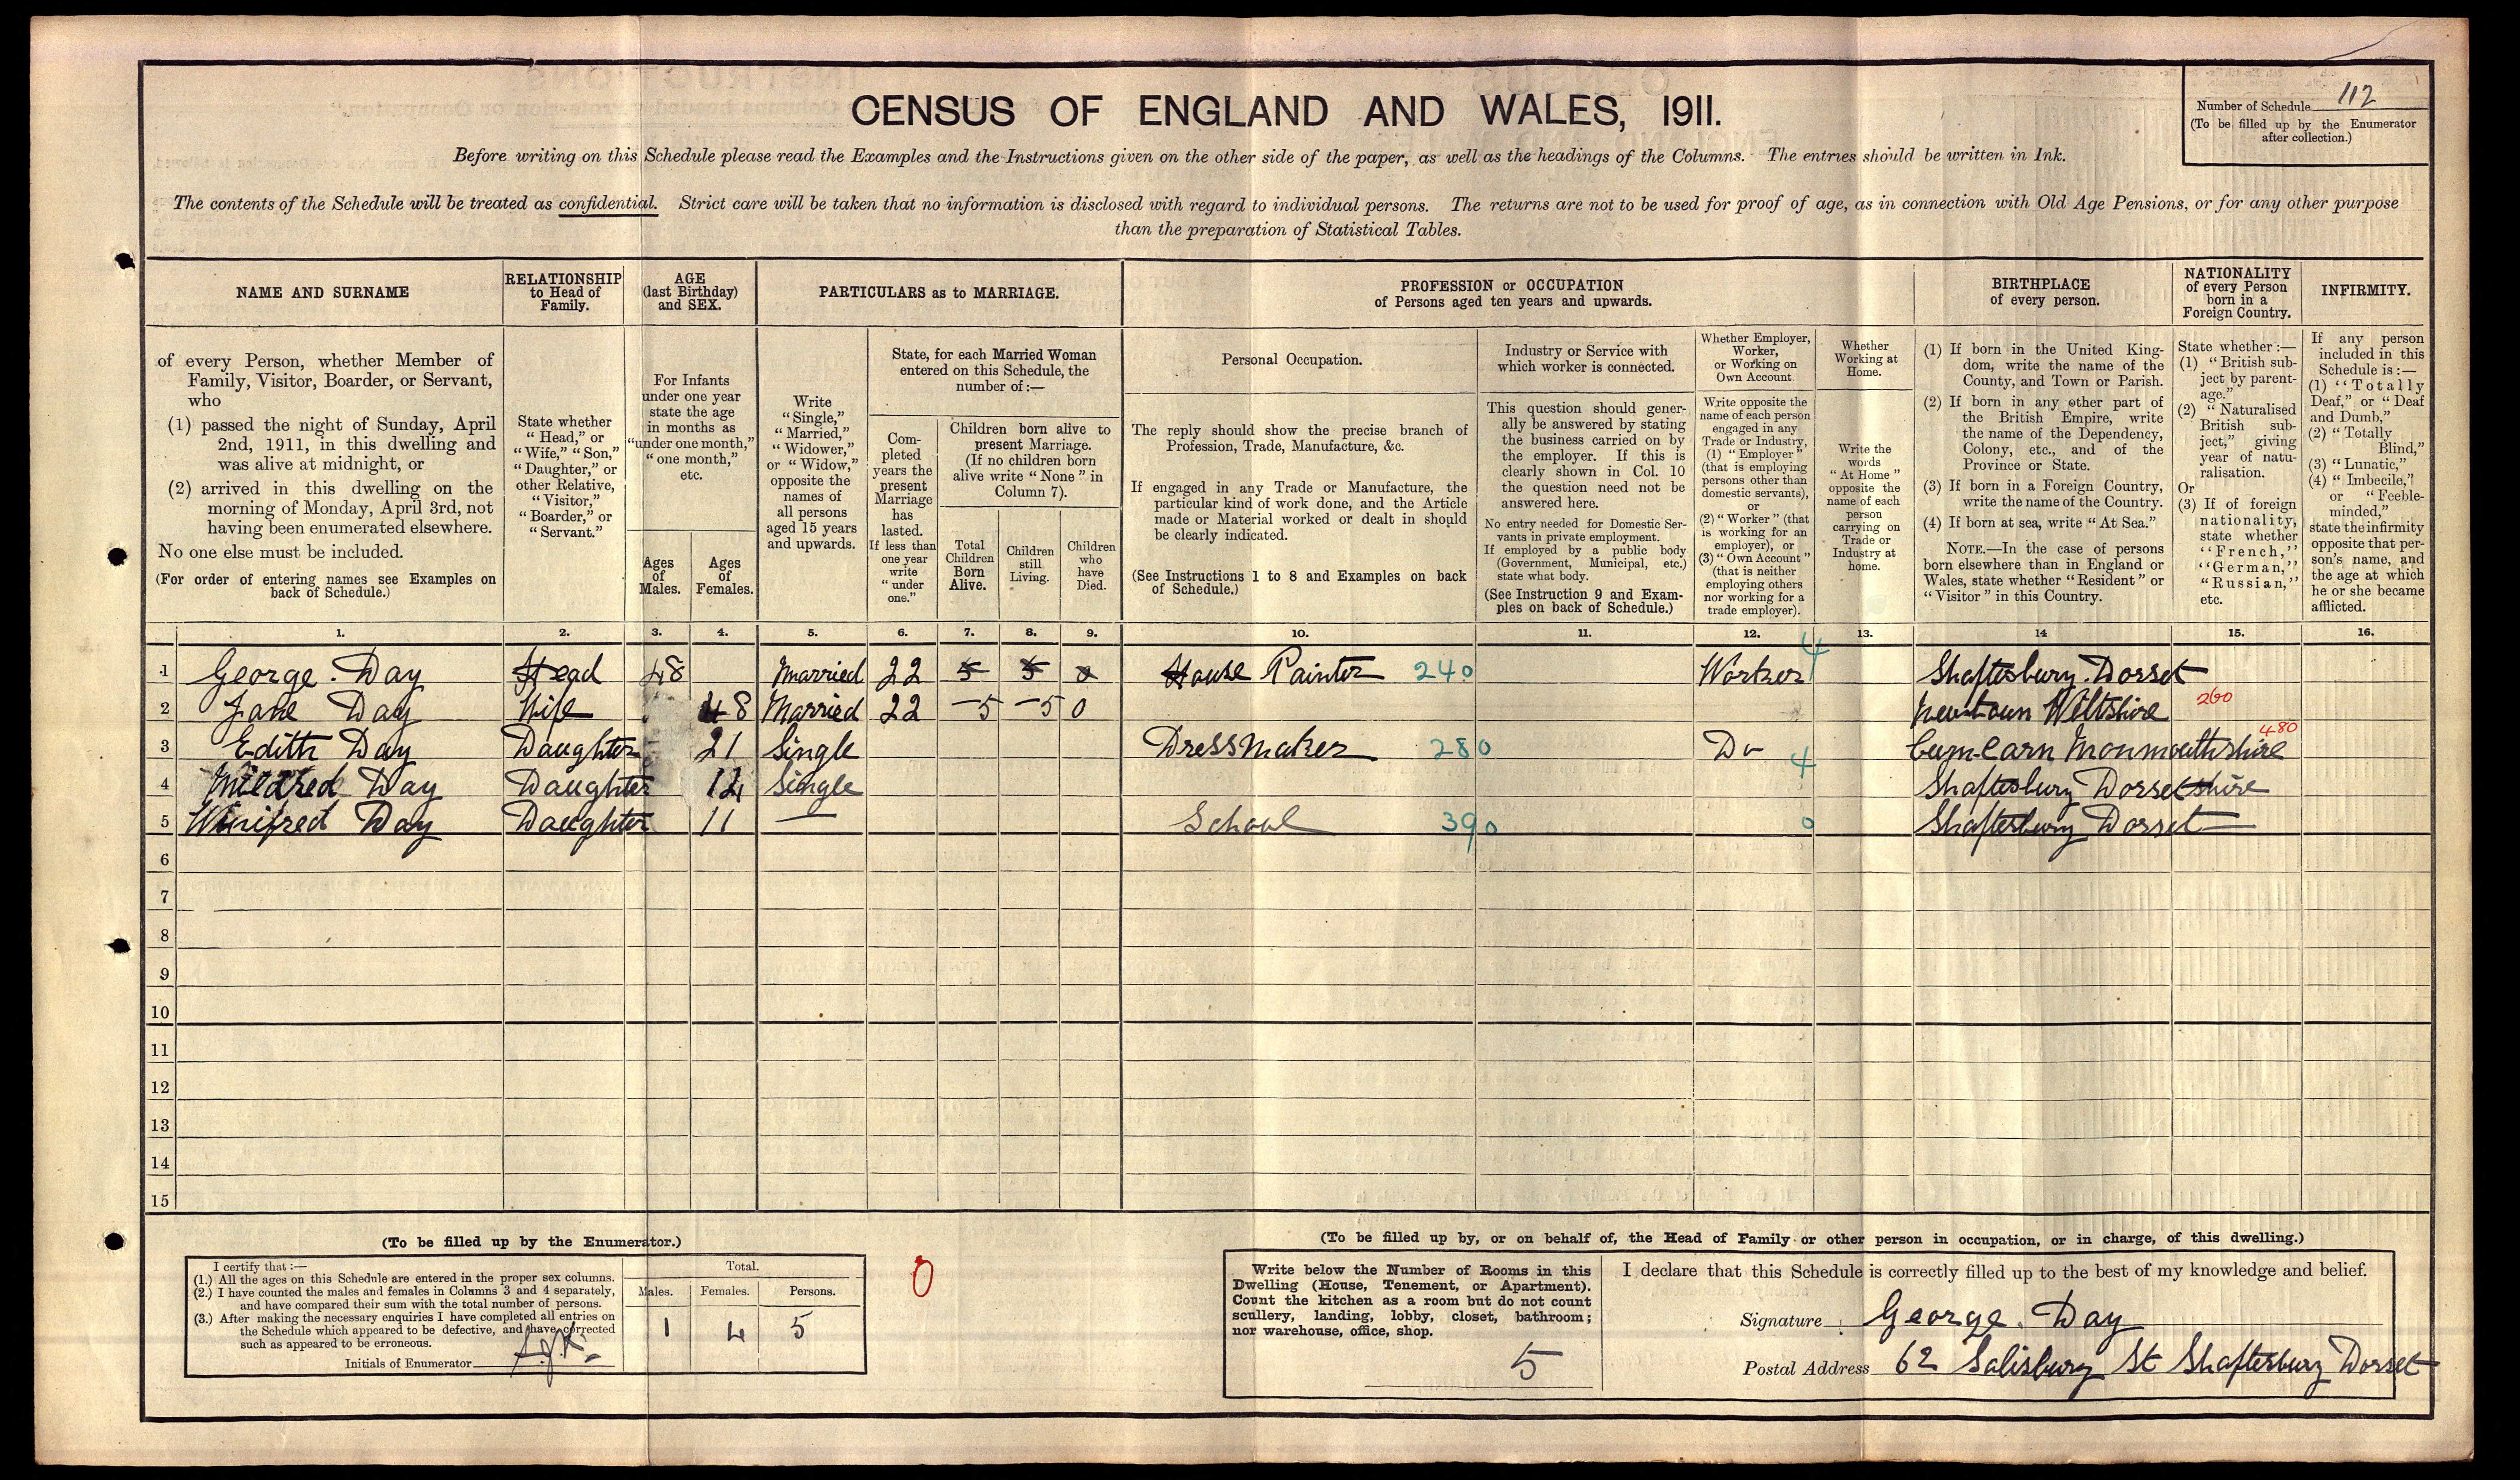 CENSUS OF ENGLAND AND WALES, 1911.
Number of Schedule 112
(To be filled up by the Enumerator
after collection.)
Before writing on this Schedule please read the Examples and the Instructions given on the other side of the paper, as well as the headings of the Columns. The entries should be written in Ink.
The contents of the Schedule will be treated as confidential. Strict care will be taken that no information is disclosed with regard to individual persons. The returns are not to be used for proof of age, as in connection with Old Age Pensions, or for any other purpose
than the preparation of Statistical Tables.
NAME AND SURNAME
of every Person, whether Member of
Family, Visitor, Boarder, or Servant,
who
(1) passed the night of Sunday, April
2nd, 1911, in this dwelling and
was alive at midnight, or
(2) arrived in this dwelling on the
morning of Monday, April 3rd, not
having been enumerated elsewhere.
No one else must be included.
(For order of entering names see Examples on
back of Schedule.)
RELATIONSHIP
to Head of
Family.
State whether
"Head," or
"Wife," "Son,"
"Daughter," or
other Relative,
"Visitor,"
"Boarder," or
"Servant."
AGE
(last Birthday)
and SEX.
For Infants
under one year
state the age
in months as
"under one month,"
"one month,"
etc.
Ages
of
Males.
Ages
of
Females.
PARTICULARS as to MARRIAGE.
Write
"Single,"
"Married,"
"Widower,"
or "Widow,"
opposite the
names of
all persons
aged 15 years
and upwards.
State, for each Married Woman
entered on this Schedule, the
number of:—
Com-
pleted
years the
present
Marriage
has
lasted.
If less than
one year
write
"under
one."
Children born alive to
present Marriage.
(If no children born
alive write "None" in
Column 7).
Total
Children
Born
Alive.
Children
still
Living.
Children
who
have
Died.
PROFESSION or OCCUPATION
of Persons aged ten years and upwards.
Personal Occupation.
The reply should show the precise branch of
Profession, Trade, Manufacture, &c.
If engaged in any Trade or Manufacture, the
particular kind of work done, and the Article
made or Material worked or dealt in should
be clearly indicated.
(See Instructions 1 to 8 and Examples on back
of Schedule.)
Industry or Service with
which worker is connected.
This question should gener-
ally be answered by stating
the business carried on by
the employer. If this is
clearly shown in Col. 10
the question need not be
answered here.
No entry needed for Domestic Ser-
vants in private employment.
If employed by a public body
(Government, Municipal, etc.)
state what body.
(See Instruction 9 and Exam-
ples on back of Schedule.)
Whether Employer,
Worker,
or Working on
Own Account.
Write opposite the
name of each person
engaged in any
Trade or Industry,
(1) "Employer"
(that is employing
persons other than
domestic servants),
or
(2) "Worker" (that
is working for an
employer), or
(3) "Own Account"
(that is neither
employing others
nor working for a
trade employer).
Whether
Working at
Home.
Write the
words
"At Home"
opposite the
name of each
person
carrying on
Trade or
Industry at
home.
BIRTHPLACE
of every person.
(1) If born in the United King-
dom, write the name of the
County, and Town or Parish.
(2) If born in any other part of
the British Empire, write
the name of the Dependency,
Colony, etc., and of the
Province or State.
(3) If born in a Foreign Country,
write the name of the Country.
(4) If born at sea, write "At Sea."
NOTE.—In the case of persons
born elsewhere than in England or
Wales, state whether "Resident" or
"Visitor" in this Country.
NATIONALITY
of every Person
born in a
Foreign Country.
State whether:—
(1) "British sub-
ject by parent-
age."
(2) "Naturalised
British sub-
ject," giving
year of natu-
ralisation.
Or
(3) If of foreign
nationality,
state whether
"French,"
"German,"
"Russian,"
etc.
INFIRMITY.
If any person
included in this
Schedule is:—
(1) "Totally
Deaf," or "Deaf
and Dumb,"
(2) "Totally
Blind,"
(3) "Lunatic,"
(4) "Imbecile,"
or "Feeble-
minded,"
state the infirmity
opposite that per-
son's name, and
the age at which
he or she became
afflicted.
1. 2. 3. 4. 5. 6. 7. 8. 9. 10. 11. 12. 13. 14 15. 16.
1 George. Day Head 48 Married 22 5 5 0 House Painter 240 Worker 4 Shaftesbury. Dorset
2 Jane Day Wife 48 Married 22 5 5 0 Newtown Wiltshire 260
3 Edith Day Daughter 21 Single DressMaker 280 Do 4 Cwm-carn Monmouthshire 480
4 Mildred Day Daughter Single Shaftesbury Dorsetshire
5 Winifred Day Daughter 11 — School 390 0 Shaftesbury Dorset
6
7
8
9
10
11
12
13
14
15
(To be filled up by the Enumerator.)
I certify that:—
(1.) All the ages on this Schedule are entered in the proper sex columns.
(2.) I have counted the males and females in Columns 3 and 4 separately,
and have compared their sum with the total number of persons.
(3.) After making the necessary enquiries I have completed all entries on
the Schedule which appeared to be defective, and have corrected
such as appeared to be erroneous.
Initials of Enumerator
Total.
Males. Females. Persons.
1 4 5
0
(To be filled up by, or on behalf of, the Head of Family or other person in occupation, or in charge, of this dwelling.)
Write below the Number of Rooms in this
Dwelling (House, Tenement, or Apartment).
Count the kitchen as a room but do not count
scullery, landing, lobby, closet, bathroom;
nor warehouse, office, shop.
5
I declare that this Schedule is correctly filled up to the best of my knowledge and belief.
Signature George. Day
Postal Address 62 Salisbury St Shaftesbury Dorset